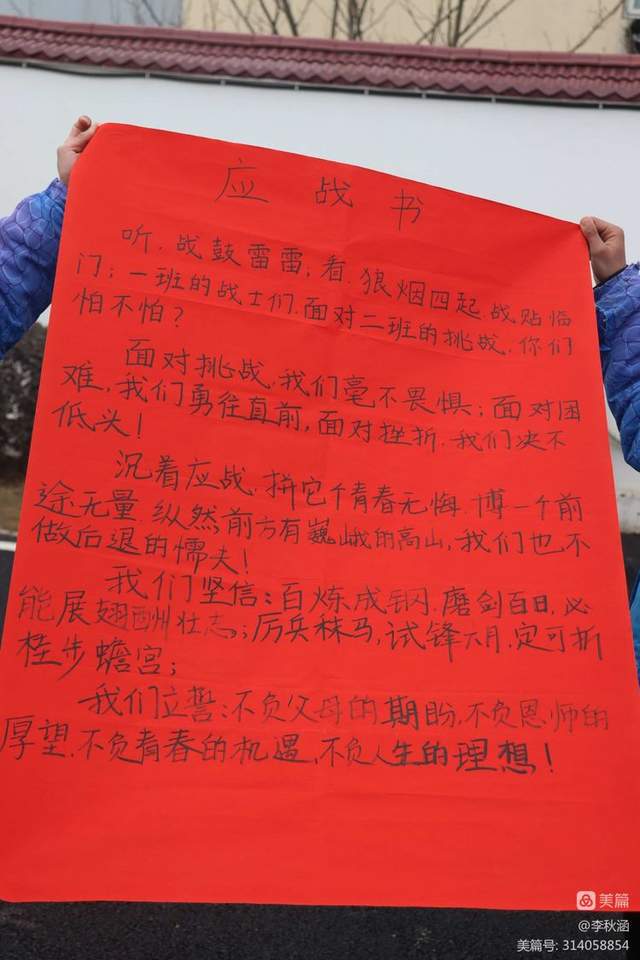 应战书
听，战鼓雷雷；看，狼烟四起，战贴临
门；一班的战士们，面对二班的挑战，你们
怕不怕？
面对挑战，我们毫不畏惧；面对困
难，我们勇往直前，面对挫折，我们决不
低头！
沉着应战，拼它个青春无悔，博一个前
途无量，纵然前方有巍峨的高山，我们也不
做后退的懦夫！
我们坚信：百炼成钢，磨剑百日，必
能展翅酬壮志；厉兵秣马，试锋六月，定可折
桂步蟾宫；
我们立誓：不负父母的期盼，不负恩师的
厚望，不负青春的机遇，不负人生的理想！
美篇
@李秋涵
美篇号: 314058854